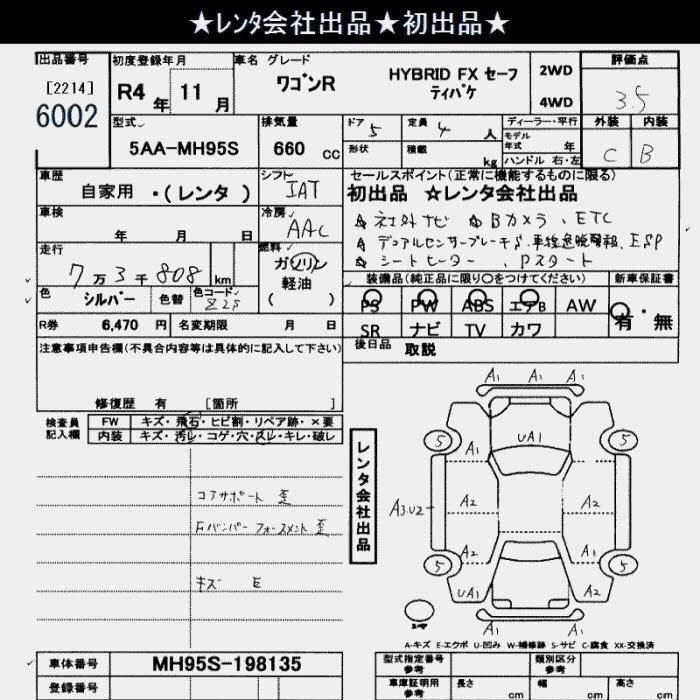 ★レンタ会社出品★初出品★
出品番号 初度登録年月 車名 グレード 評価点
[2214] 6002 R4年 11月 ワゴンR HYBRID FX セーフティパケ 2WD 4WD 3.5
型式 排気量 ドア 5 定員 4人 ディーラー・平行 外装 内装
5AA-MH95S 660 cc 形状 積載 kg モデル年式 年 ハンドル 右・左 C B
車歴 シフト IAT セールスポイント(正常に機能するものに限る)
自家用 ・(レンタ) 初出品 ☆レンタ会社出品
車検 年 月 日 冷房 AAC ☆社外ナビ ☆Bカメラ、ETC
走行 燃料 ガソリン 軽油 ( ) ☆デュアルセンサーブレーキS、車線逸脱警報、ESP
7万3千808 km ☆シートヒーター、Pスタート
色 シルバー 色替 色コード Z2S 装備品(純正品に限り○をつけてください) 新車保証書
PS PW ABS エアB AW 有・無
R券 6,470 円 名変期限 月 日 SR ナビ TV カワ
注意事項申告欄(不具合内容等は具体的に記入して下さい) 後日品 取説
修復歴 有 [箇所 ]
検査員記入欄 FW キズ・飛石・ヒビ割・リペア跡・×要
内装 キズ・汚レ・コゲ・穴・スレ・キレ・破レ
コアサポート 歪
Fバンパー フォースメント 歪
キズ E
レンタ会社出品
A1 A1 A1
5 A1 UA1 A1 5
A3.U2 A2 A2
A2 A1
5 5
UA1 A2
A1 A1 A1
A-キズ E-エクボ U-凹み W-補修跡 S-サビ C-腐食 XX-交換済
車体番号 MH95S-198135 型式指定番号 参考 類別区分 参考
登録番号 車庫証明用 参考 長さ cm 幅 cm 高さ cm